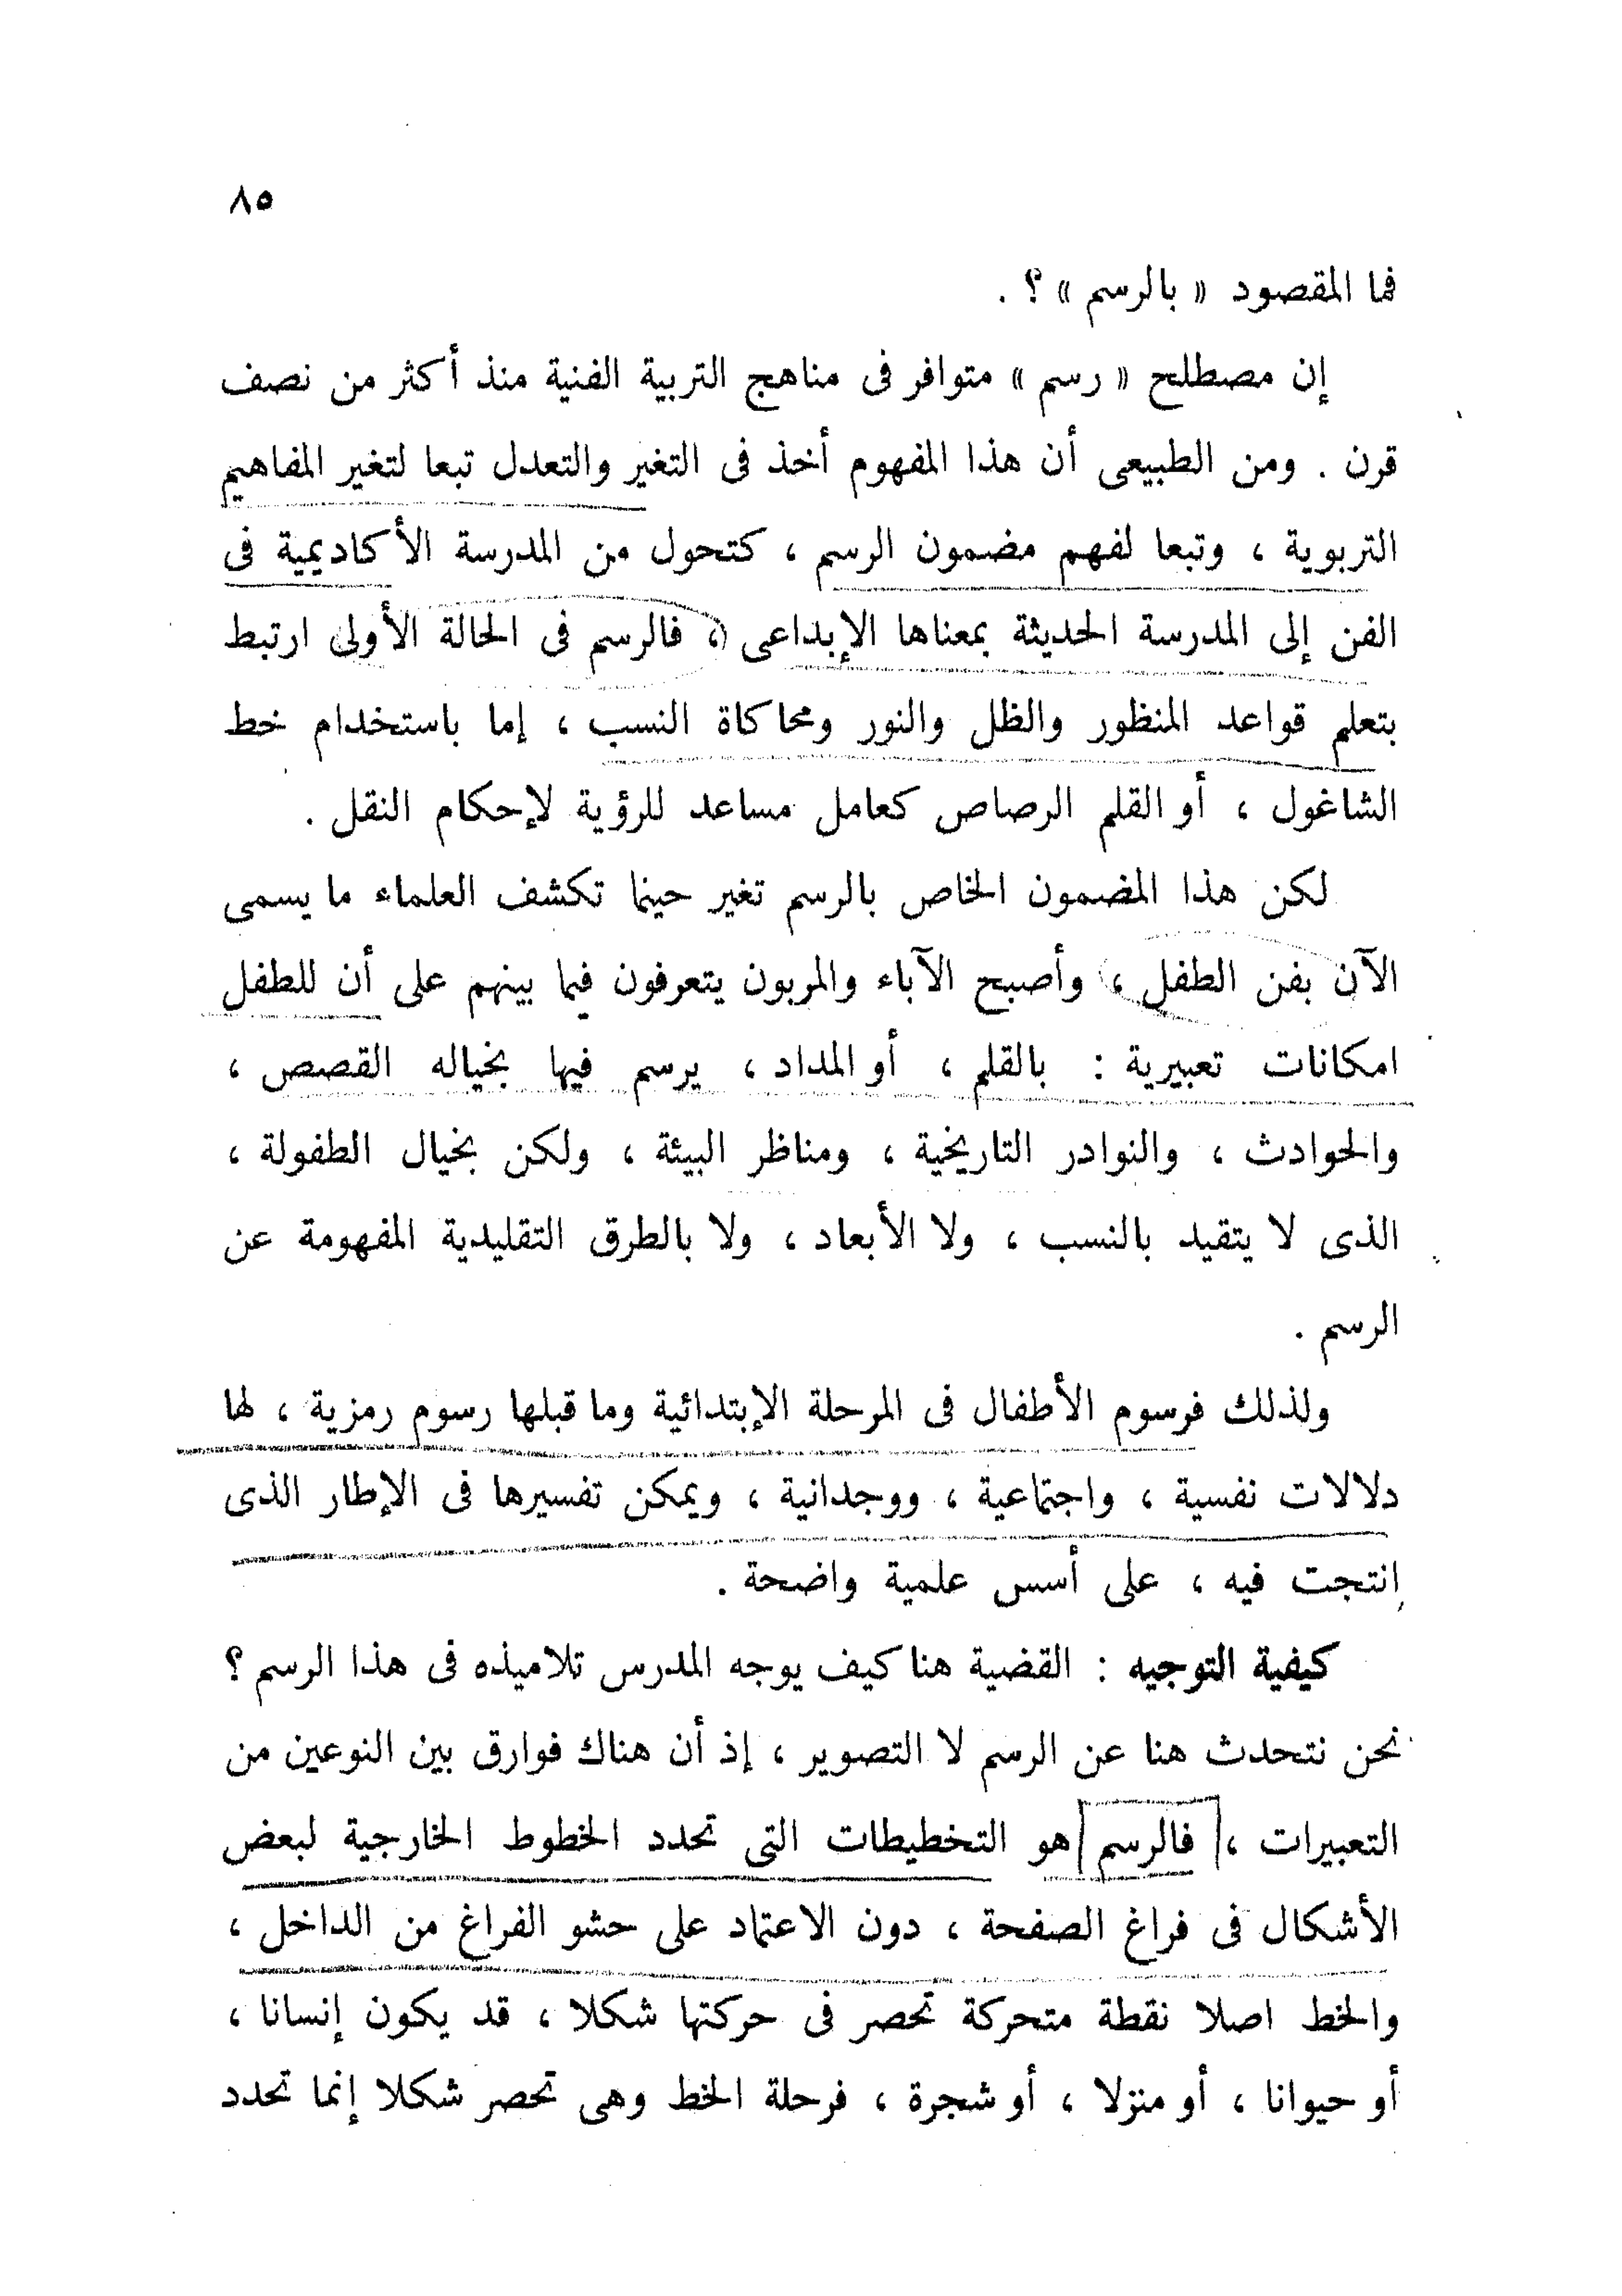 ٨٥
فما المقصود « بالرسم » ؟ .
إن مصطلح « رسم » متوافر فى مناهج التربية الفنية منذ أكثر من نصف
قرن . ومن الطبيعى أن هذا المفهوم أخذ فى التغير والتعدل تبعا لتغير المفاهيم
التربوية ، وتبعا لفهم مضمون الرسم ، كتحول من المدرسة الأكاديمية فى
الفن إلى المدرسة الحديثة بمعناها الإبداعى ، فالرسم فى الحالة الأولى ارتبط
بتعلم قواعد المنظور والظل والنور ومحاكاة النسب ، إما باستخدام خط
الشاغول ، أو القلم الرصاص كعامل مساعد للرؤية لإحكام النقل .
لكن هذا المضمون الخاص بالرسم تغير حينما تكشف العلماء ما يسمى
الآن بفن الطفل ، وأصبح الآباء والمربون يتعرفون فيما بينهم على أن للطفل
امكانات تعبيرية : بالقلم ، أو المداد ، يرسم فيها بخياله القصص ،
والحوادث ، والنوادر التاريخية ، ومناظر البيئة ، ولكن بخيال الطفولة ،
الذى لا يتقيد بالنسب ، ولا الأبعاد ، ولا بالطرق التقليدية المفهومة عن
الرسم .
ولذلك فرسوم الأطفال فى المرحلة الإبتدائية وما قبلها رسوم رمزية ، لها
دلالات نفسية ، واجتماعية ، ووجدانية ، ويمكن تفسيرها فى الإطار الذى
إنتجت فيه ، على أسس علمية واضحة .
كيفية التوجيه : القضية هنا كيف يوجه المدرس تلاميذه فى هذا الرسم ؟
نحن نتحدث هنا عن الرسم لا التصوير ، إذ أن هناك فوارق بين النوعين من
التعبيرات ، فالرسم هو التخطيطات التى تحدد الخطوط الخارجية لبعض
الأشكال فى فراغ الصفحة ، دون الاعتماد على حشو الفراغ من الداخل ،
والخط اصلا نقطة متحركة تحصر فى حركتها شكلا ، قد يكون إنسانا ،
أو حيوانا ، أو منزلا ، أو شجرة ، فرحلة الخط وهى تحصر شكلا إنما تحدد